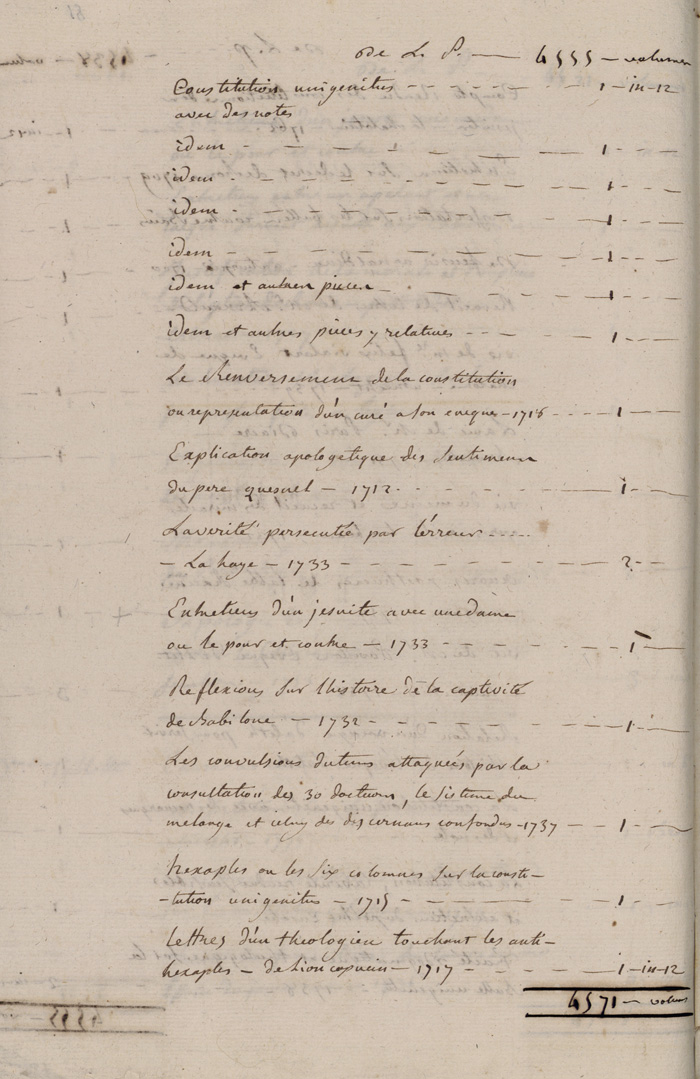 de L. P. — 4555 — volumes
Constitution unigenitus - - - - - - 1 - in-12
avec des notes
idem - - - - - - - 1 - -
idem - - - - - - - 1 - -
idem - - - - - - - 1 - -
idem - - - - - - - 1 - -
idem et autres pieces - - - - 1 - -
idem et autres pieces y relatives - - - 1 -
Le Renversement de la constitution
ou representation d'un curé a son eveque - 1716 - - - - 1 -
Explication apologetique des sentimens
du pere quesnel — 1712 - - - - - 1 -
La verité persecutée par l'erreur - - - - -
— La haye — 1733 - - - - - - 2 -
Entretiens d'un jesuite avec une dame
ou le pour et contre — 1733 - - - - - 1 -
Reflexions sur l'histoire de la captivité
de babilone — 1732 - - - - - - 1 -
Les convulsions du tems attaquées par la
consultation des 30 docteurs, le sisteme du
melange et celuy des discernans confondus - 1737 - - 1 -
hexaples ou les six colomnes sur la consti-
-tution unigenitus — 1715 - - - - - - 1 -
Lettres d'un theologien touchant les anti-
hexaples — de Lion capucin — 1717 - - - - 1 - in-12
4571 — volumes